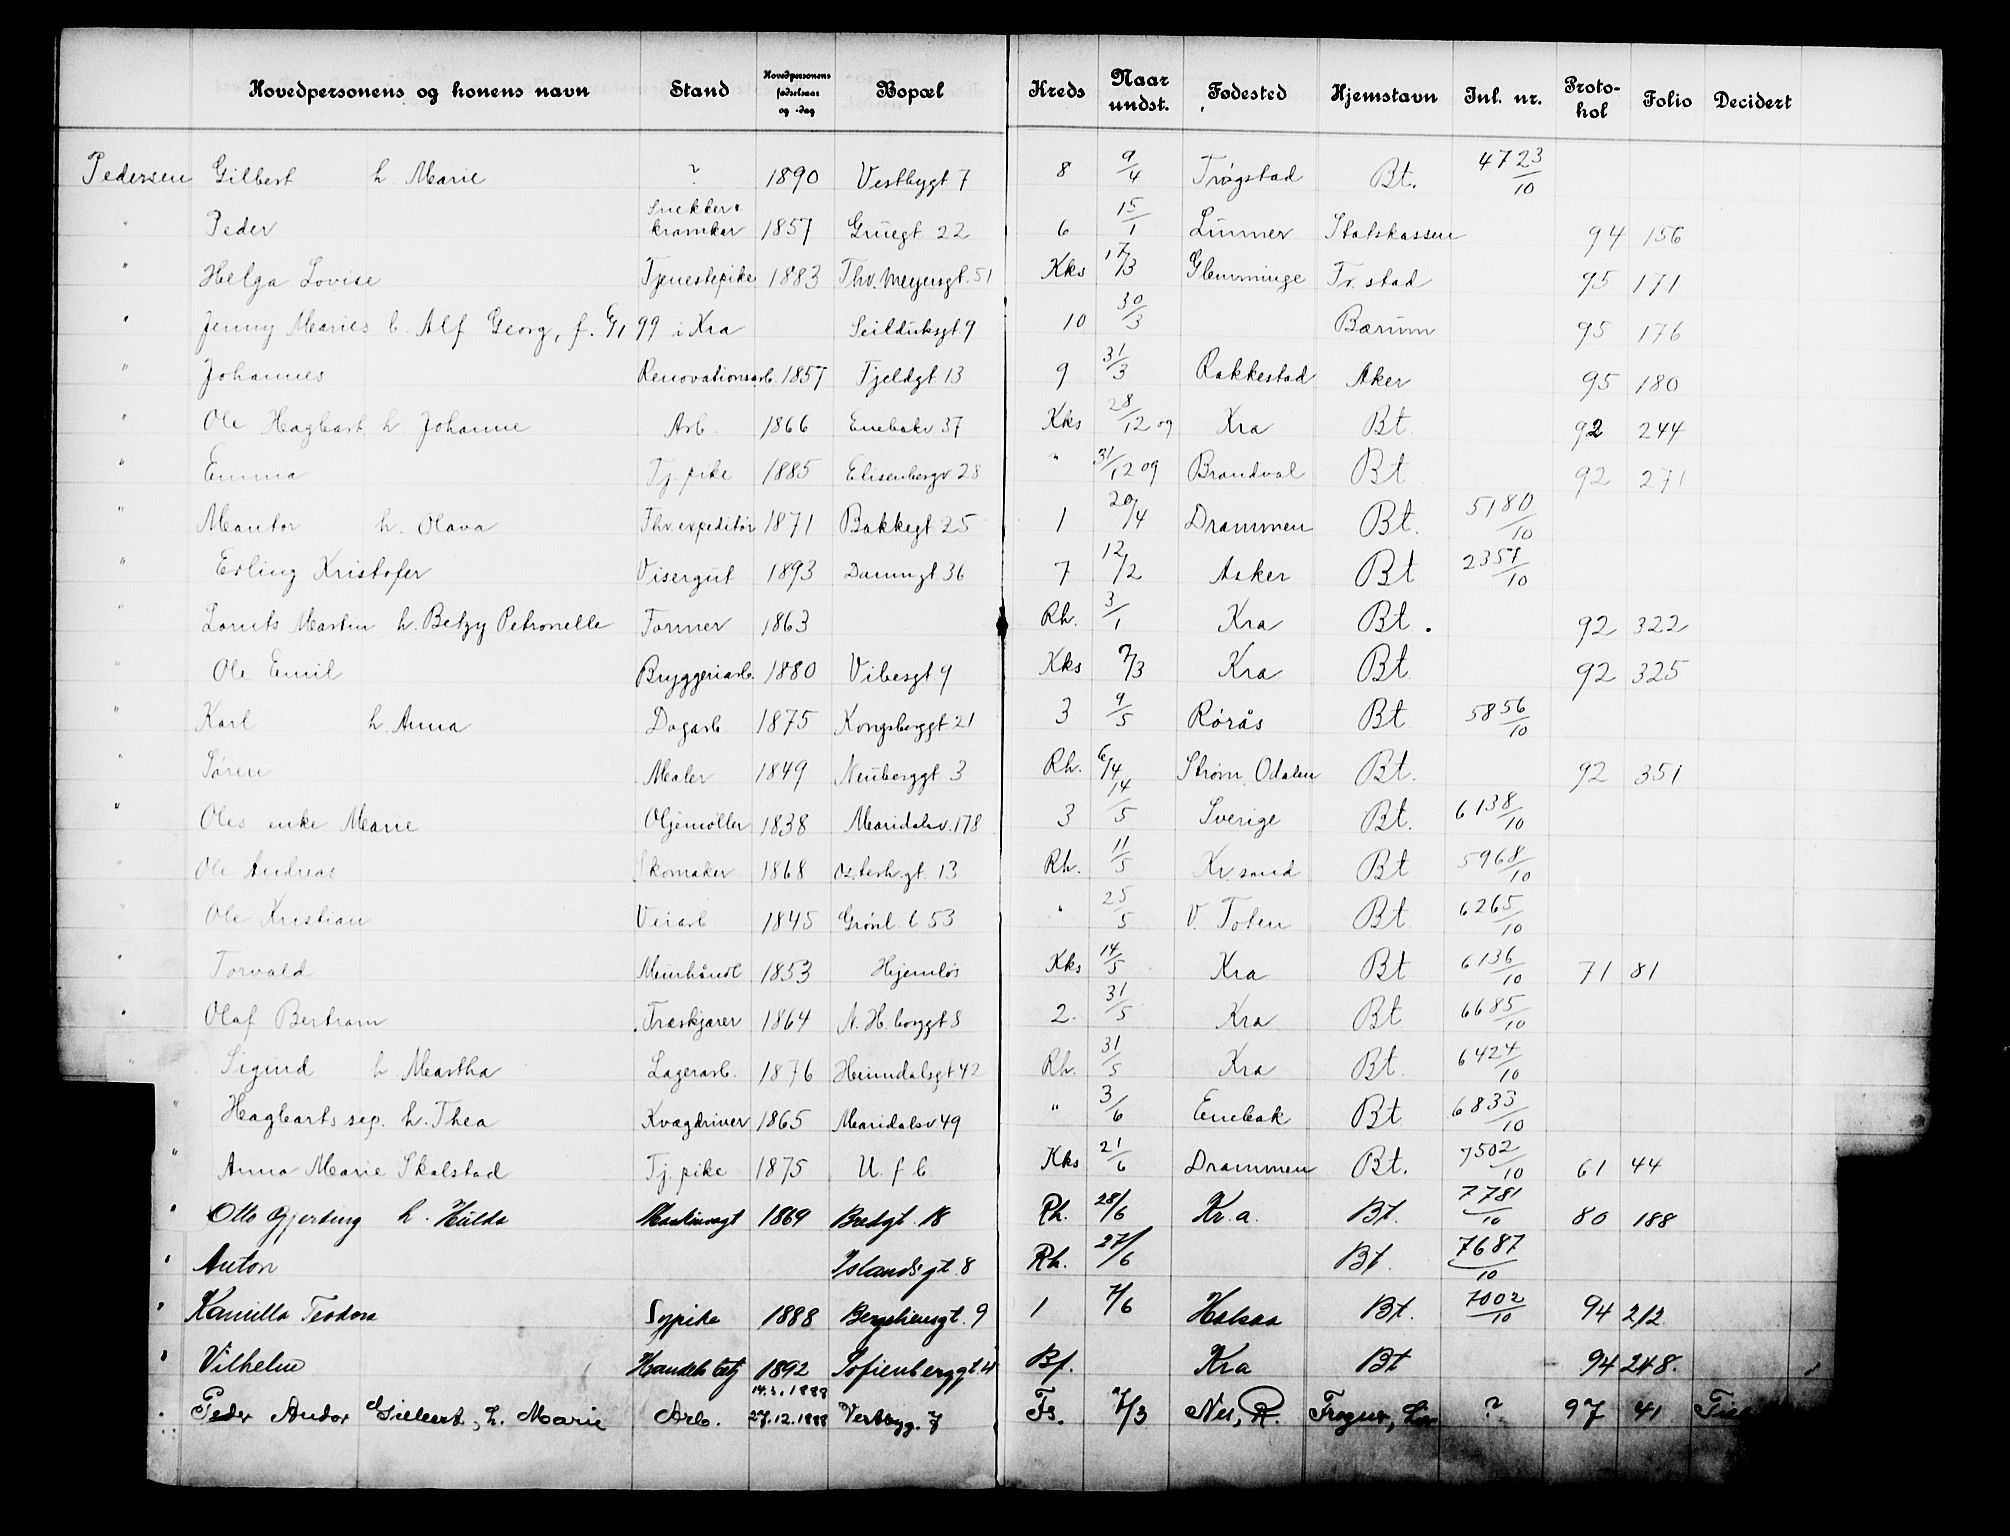 Hovedpersonens og konens navn Stand Hovedpersonens fødselsaar og -dag Bopæl Kreds Naar undst. Fødested Hjemstavn Inl. nr. Protokol Folio Decidert
Pedersen Gilbert h. Marie ? 1890 Vestbygt 7 8 9/4 Trøgstad Bt. 4723/10
" Peder Snekker & kramkar 1857 Gruegt 22 6 15/1 Lunner Statskassen 94 156
" Helga Lovise Tjenestepike 1883 Thv. Meyersgt. 51 Kks 17/3 Glemminge Fr. stad 95 171
" Jenny Maries b. Alf Georg, f. 6/1 99 i Kra Seilduksgt 9 10 30/3 Bærum 95 176
" Johannes Renovationsarb. 1857 Fjeldgt 13 9 31/3 Rakkestad Aker 95 180
" Ole Hagbart h. Johanne Arb. 1866 Enebakv 37 Kks 28/12 09 Kra Bt 92 244
" Emma Tj. pike 1885 Elisenbergv 28 " 31/12 09 Brandval Bt 92 271
" Mantor h. Olava Thv. expeditør 1871 Bakkegt 25 1 20/4 Drammen Bt. 5180/10
" Erling Kristofer Visergut 1893 Damngt 36 7 12/2 Asker Bt 2357/10
" Laurits Martin h. Betzy Petronelle Former 1863 Rh. 3/1 Kra Bt. 92 322
" Ole Emil Bryggeriarb. 1880 Vibesgt 9 Kks 7/3 Kra Bt 92 325
" Karl h. Anna Dagarb 1875 Kongsberggt 21 3 9/5 Rørås Bt 5856/10
" Søren Maler 1849 Neuberggt 3 Rh. 6/4 Strøm, Odalen Bt. 92 351
" Oles enke Marie Oljemøller 1838 Maridalsv. 178 3 14/5 Sverige Bt. 6138/10
" Ole Andreas Skomaker 1868 Osterh. gt. 13 Rh. 11/5 Kr. sand Bt 5968/10
" Ole Kristian Veiarb. 1845 Grønl. 6 53 " 25/5 V. Toten Bt 6265/10
" Torvald Murhåndl 1853 Hjemløs Kks 14/5 Kra Bt 6136/10 71 81
" Olaf Bertram Træskjærer 1864 N. H. borggt 8 2. 31/5 Kra Bt 6685/10
" Sigurd h Martha Lagerarb. 1876 Heimdalsgt 42 Rh. 31/5 Kra Bt. 6424/10
" Hagbarts sep. h. Thea Kvægdriver 1865 Maridalsv 49 " 3/6 Enebak Bt 6833/10
" Anna Marie Skalstad Tj. pike 1875 U. f b. Kks 21/6 Drammen Bt. 7502/10 61 44
" Otto Gjerding h. Hulda 1869 Bredgt. 18 Rh. 28/6 Kr.a. Bt. 7781/10 80 188
" Anton Islandsgt. 8 Rh. 27/6 Bt. 7687/10
" Kamilla Teodora Sypike 1888 Bergsliensgt. 9 1 7/6 Halsaa Bt. 7002/10 94 212
" Vilhelm 1892 Sofienberggt. 4 Bf. Kra Bt 94 248.
. Peder Andor Gilbert, h. Marie Arb. 14.3.1888 27.12.1888 Vestbyg. 7 Fs. 7/3 Nes, R. Frogner, ? 97 41